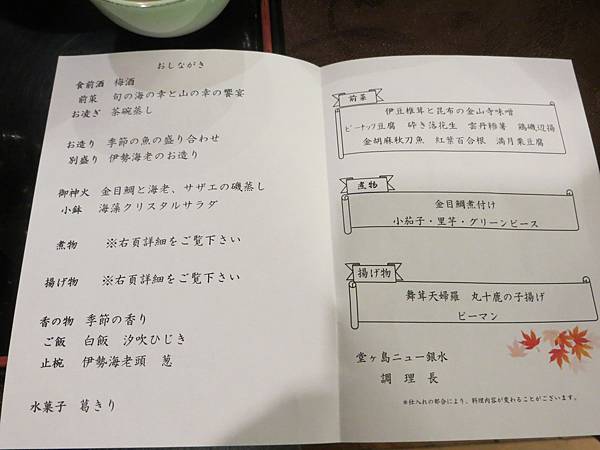 おしながき
食前酒 梅酒
前菜 旬の海の幸と山の幸の饗宴
お凌ぎ 茶碗蒸し
お造り 季節の魚の盛り合わせ
別盛り 伊勢海老のお造り
御神火 金目鯛と海老、サザエの磯蒸し
小鉢 海藻クリスタルサラダ
煮物 ※右頁詳細をご覧下さい
揚げ物 ※右頁詳細をご覧下さい
香の物 季節の香り
ご飯 白飯 汐吹ひじき
止椀 伊勢海老頭 葱
水菓子 葛きり
前菜
伊豆椎茸と昆布の金山寺味噌
ピーナッツ豆腐 砕き落花生 雲丹松笠 鶏磯辺揚
金胡麻秋刀魚 紅葉百合根 満月栗豆腐
煮物
金目鯛煮付け
小茄子・里芋・グリーンピース
揚げ物
舞茸天婦羅 丸十鹿の子揚げ
ピーマン
堂ヶ島ニュー銀水
調理長
※仕入れの都合により、料理内容が変わることがございます。